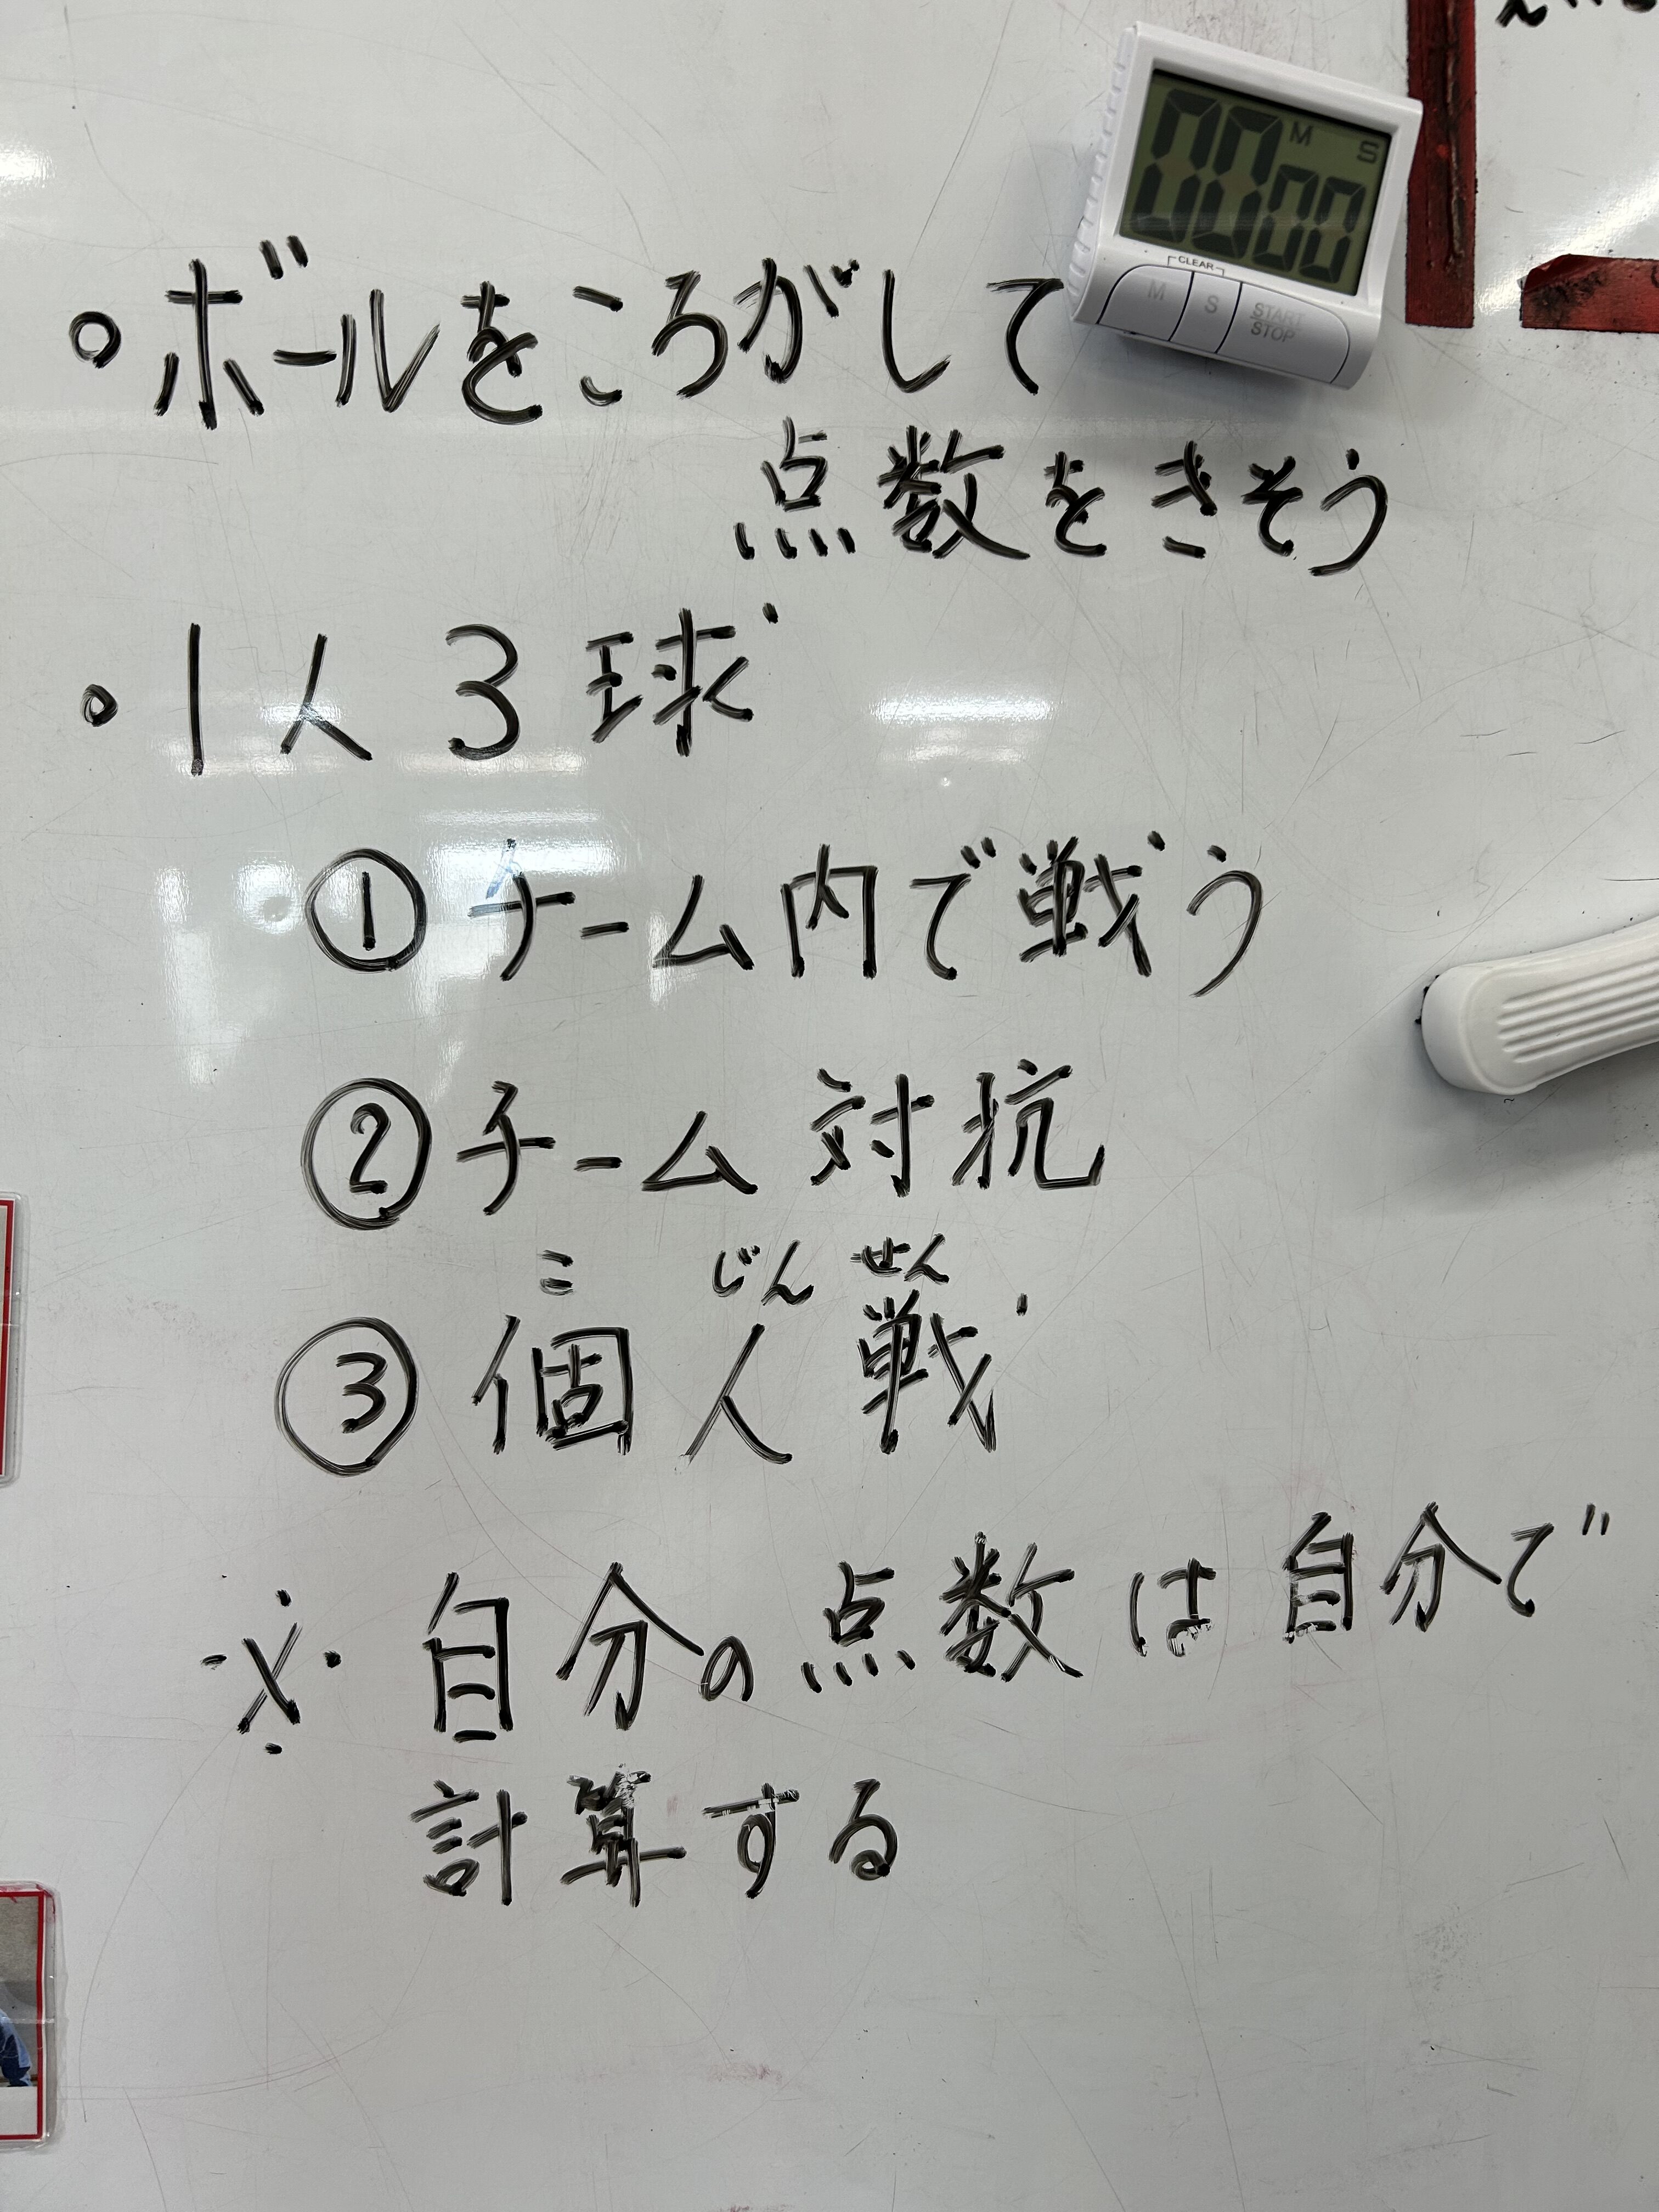 00 M 00 S
CLEAR
M S START STOP
○ボールをころがして
点数をきそう
○1人 3球
①チーム内で戦う
②チーム対抗
こ じん せん
③個人戦
※自分の点数は自分で
計算する